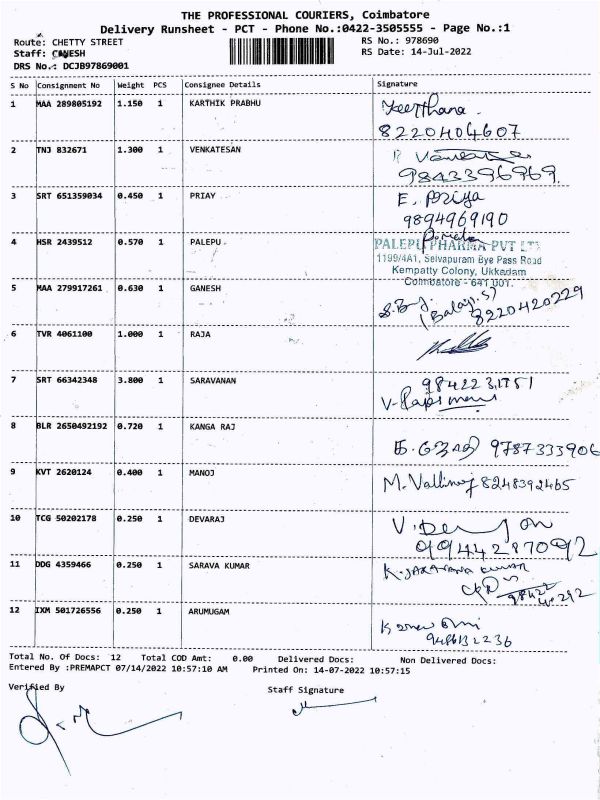 THE PROFESSIONAL COURIERS, Coimbatore
Delivery Runsheet - PCT - Phone No.:0422-3505555 - Page No.:1
Route: CHETTY STREET RS No.: 978690
Staff: GANESH RS Date: 14-Jul-2022
DRS No.: DCJB97869001
S No Consignment No Weight PCS Consignee Details Signature
1 MAA 289805192 1.150 1 KARTHIK PRABHU Keerthana
8220404607
2 TNJ 832671 1.300 1 VENKATESAN
9843396969
3 SRT 651359034 0.450 1 PRIAY E. Priya
9894969190
4 HSR 2439512 0.570 1 PALEPU PALEPU PHARMA PVT LTD
1199/4A1, Selvapuram Bye Pass Road
Kempatty Colony, Ukkadam
Coimbatore - 641 001.
5 MAA 279917261 0.630 1 GANESH
(Balaji.S) 8220420229
6 TVR 4061100 1.000 1 RAJA
7 SRT 66342348 3.800 1 SARAVANAN
8 BLR 2650492192 0.720 1 KANGA RAJ
9787333906
9 KVT 2620124 0.400 1 MANOJ 8248392465
10 TCG 50202178 0.250 1 DEVARAJ
9944287092
11 DDG 4359466 0.250 1 SARAVA KUMAR K. SARAVANA KUMAR
12 IXM 501726556 0.250 1 ARUMUGAM
Total No. Of Docs: 12 Total COD Amt: 0.00 Delivered Docs: Non Delivered Docs:
Entered By :PREMAPCT 07/14/2022 10:57:10 AM Printed On: 14-07-2022 10:57:15
Verified By
Staff Signature